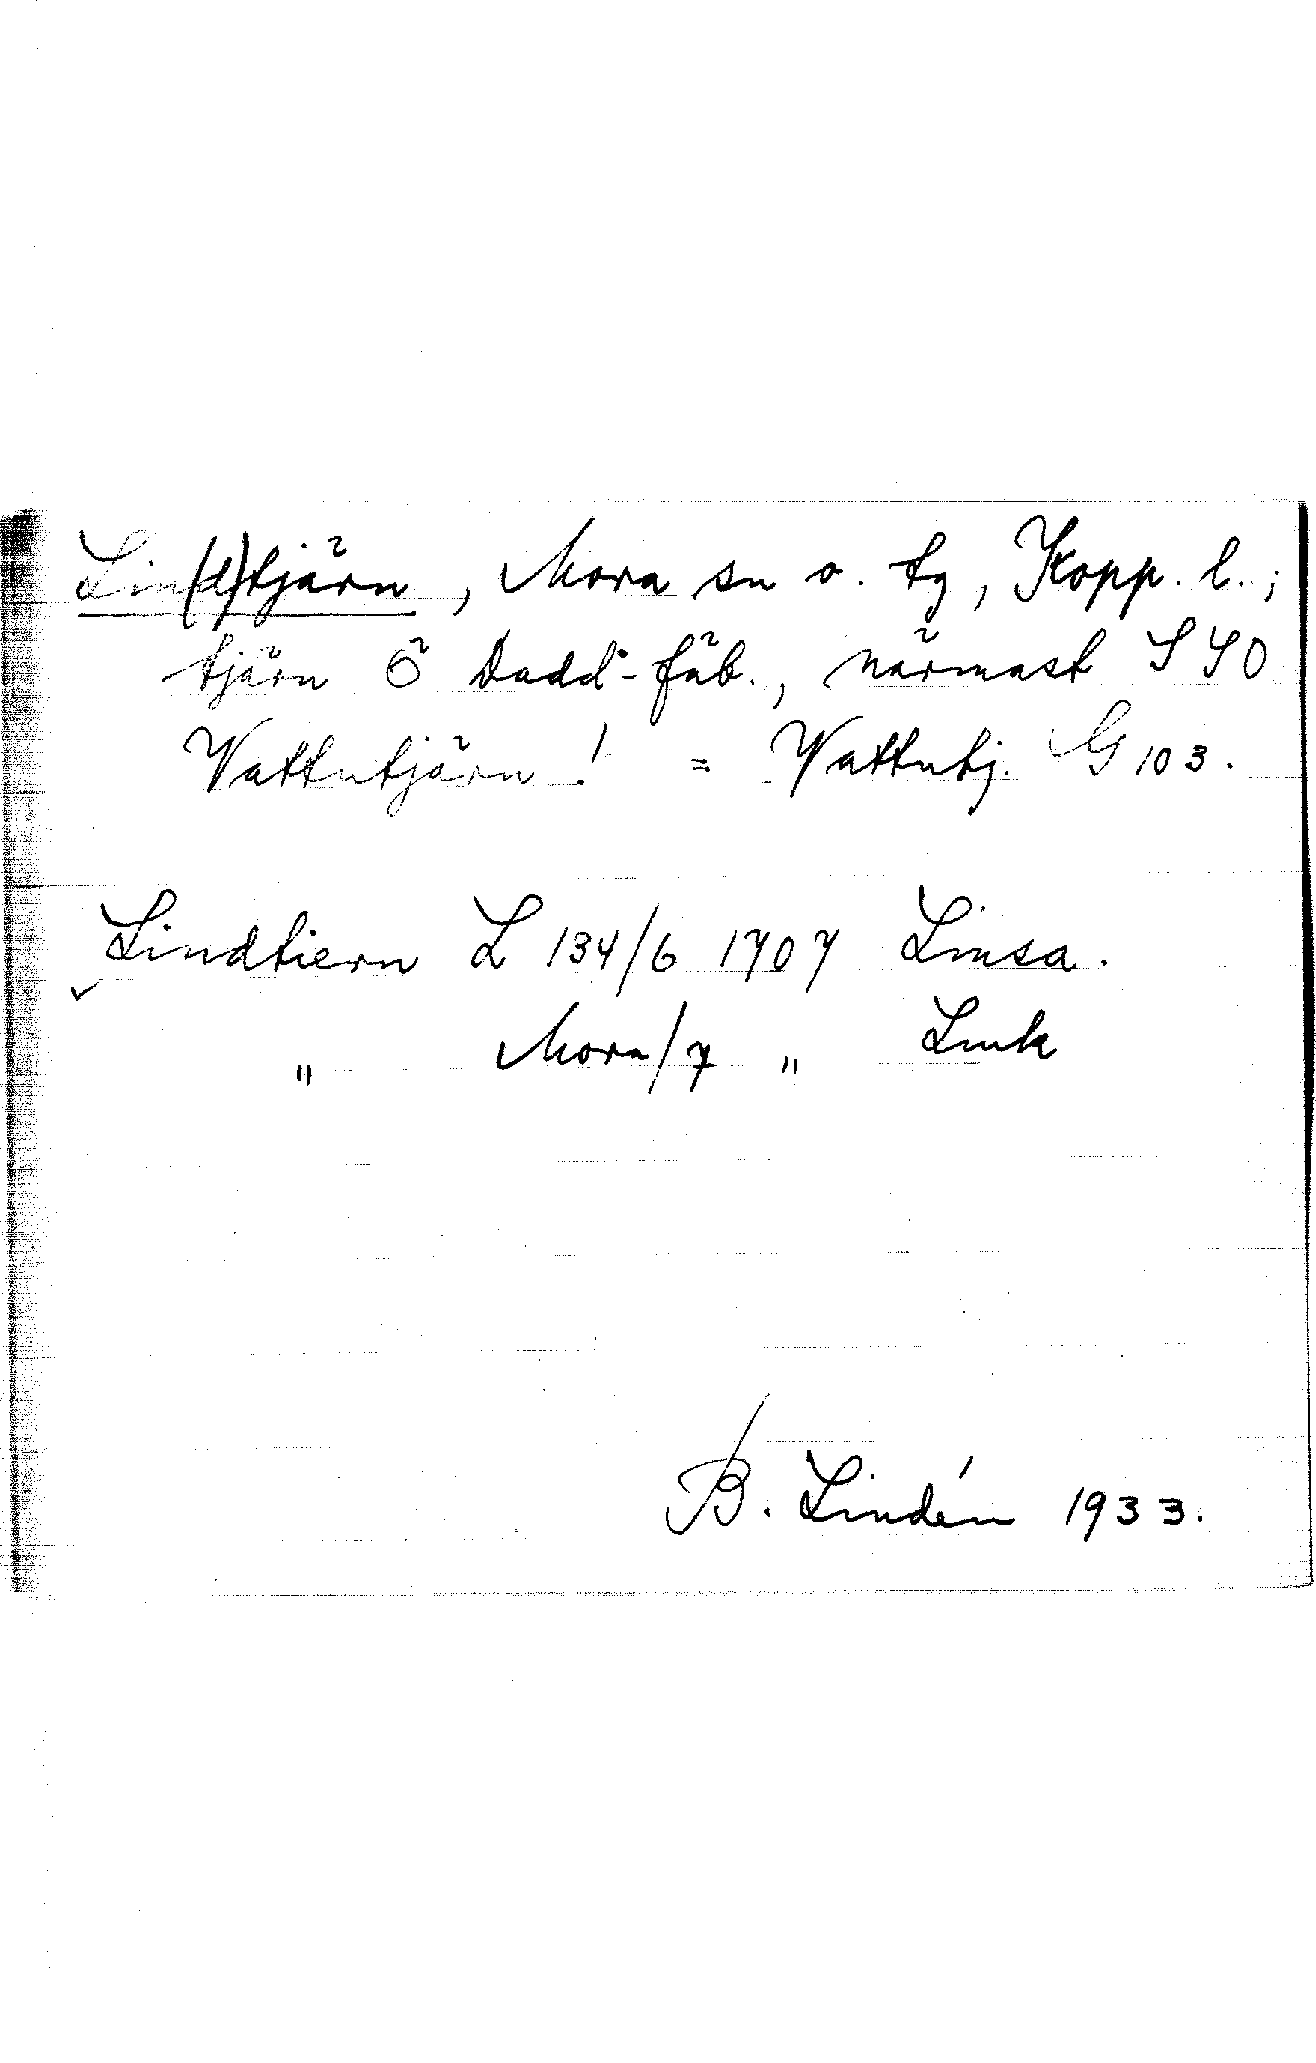 Lin(d)tjärn, Mora sn o. tg, Kopp. l.;
tjärn Ö Dadd-fäb., närmast SSO
Vattutjärn! = Vattutj. G 103.
Lindtiern L 134/6 1707 Linsa.
" Mora/7 " Link
B. Lindén 1933.